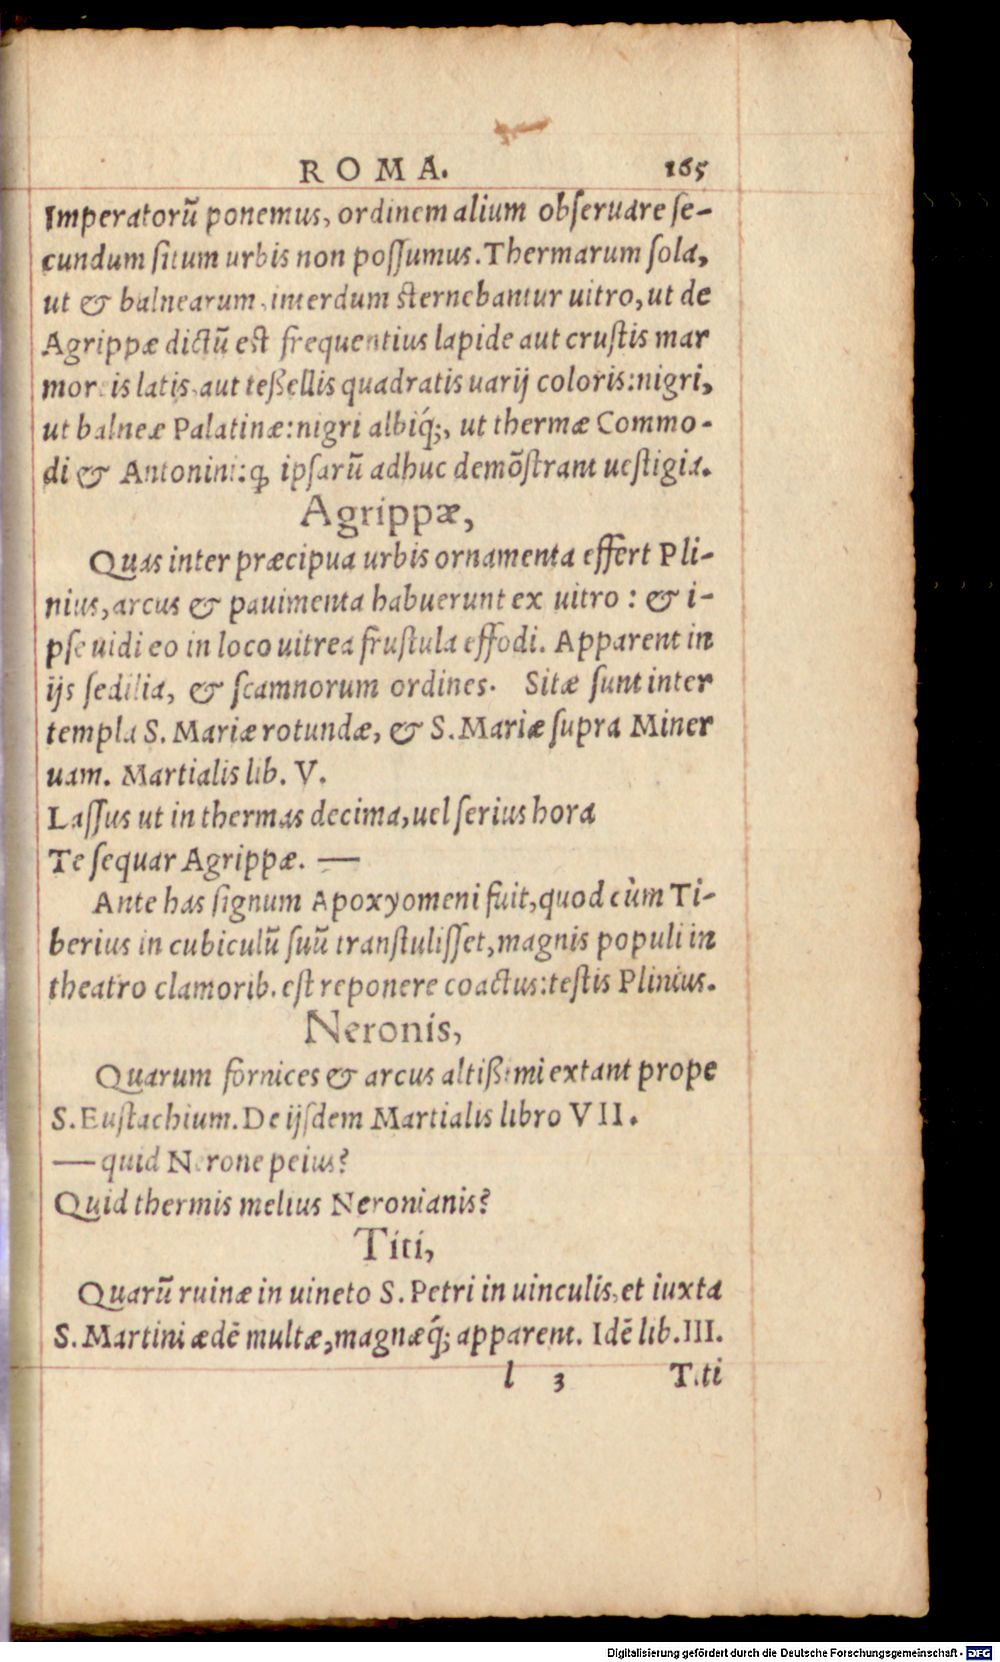 ROMA. 165
Imperatorũ ponemus, ordinem alium obseruare se-
cundum situm urbis non possumus. Thermarum sola,
ut & balnearum, interdum sternebantur uitro, ut de
Agrippæ dictũ est frequentius lapide aut crustis mar
moreis latis, aut teßellis quadratis uarij coloris: nigri,
ut balneæ Palatinæ: nigri albiq́;, ut thermæ Commo-
di & Antonini: ꝙ ipsarũ adhuc demõstrant uestigia.
Agrippæ,
Quas inter præcipua urbis ornamenta effert Pli-
nius, arcus & pauimenta habuerunt ex uitro: & i-
pse uidi eo in loco uitrea frustula effodi. Apparent in
ijs sedilia, & scamnorum ordines. Sitæ sunt inter
templa S. Mariæ rotundæ, & S. Mariæ supra Miner
uam. Martialis lib. V.
Lassus ut in thermas decima, uel serius hora
Te sequar Agrippæ. —
Ante has signum Apoxyomeni fuit, quod cùm Ti-
berius in cubiculũ suũ transtulisset, magnis populi in
theatro clamorib. est reponere coactus: testis Plinius.
Neronis,
Quarum fornices & arcus altißimi extant prope
S. Eustachium. De ijsdem Martialis libro VII.
— quid Nerone peius?
Quid thermis melius Neronianis?
Titi,
Quarũ ruinæ in uineto S. Petri in uinculis, et iuxta
S. Martini ædẽ multæ, magnæq́; apparent. Idẽ lib. III.
l 3 Titi
Digitalisierung gefördert durch die Deutsche Forschungsgemeinschaft - DFG